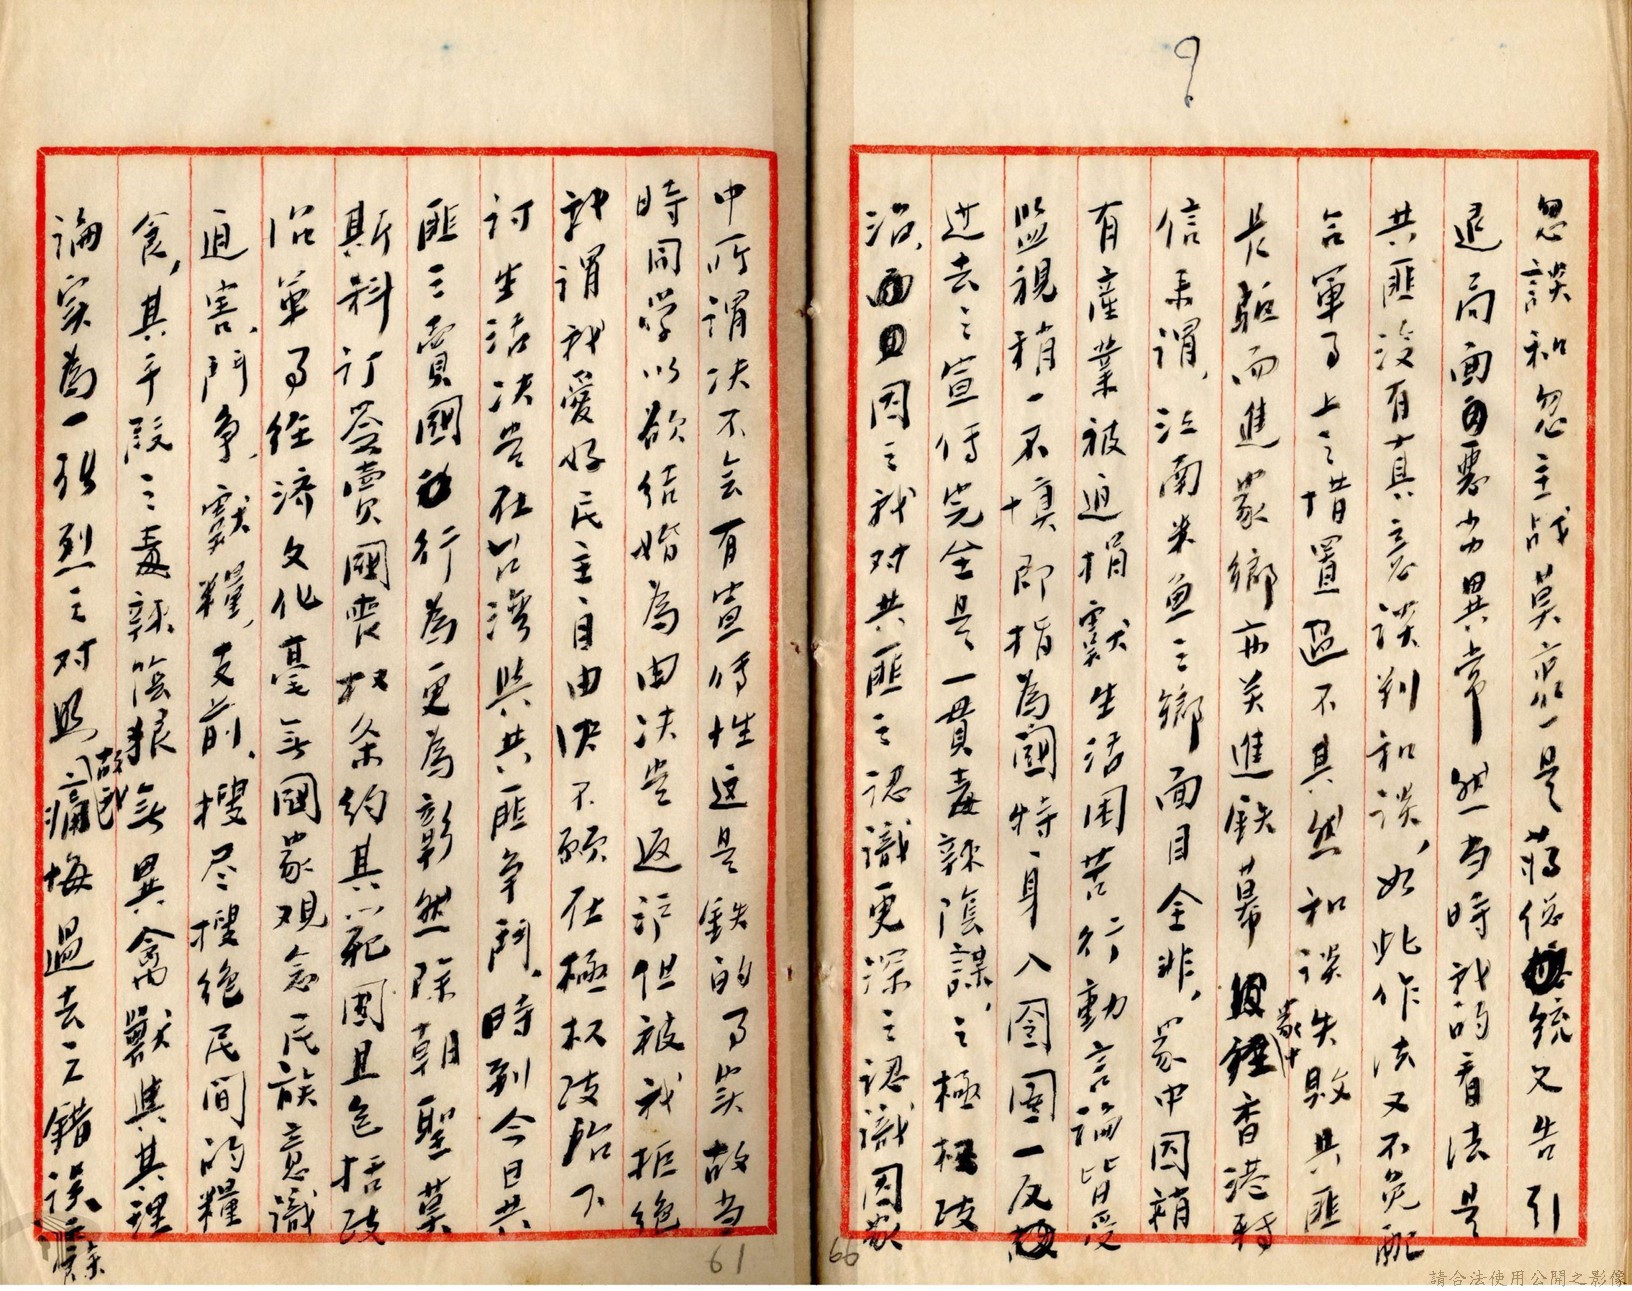 忽談和忽主战莫衷一是蔣總統又告引
退局面更當異常然当時我的看法是
共匪沒有真意談判和談，如此作法又不免配
合軍事上之措置適不其然和談失敗共匪
長驅而進家鄉亦关進鉄幕家中香港轉
信来謂，江南米魚之鄉面目全非，家中因稍
有產業被迫捐獻生活困苦行動言論皆受
監視稍一不慎即指為國特，身入囹圄一反
过去之宣传完全是一貫毒辣陰謀，之極权政
治，因之我对共匪之認識更深之認識因家
中所謂决不会有宣傳性这是鉄的事实故当
時同学以欲结婚為由决尝返沪但被我拒绝
我謂我愛好民主自由决不願在極权政治下
讨生活决尝在台湾與共匪争鬥，時到今日共
匪之賣國行為更為彰然除朝聖莫
斯科订簽賣國喪权条约其範圍且包括政
治軍事經濟文化毫無國家观念民族意識
迫害，鬥争，獻糧，支前，搜尽搜绝民间的糧
食，其手段之毒辣陰狠無異禽獸與其理
論实為一强烈之对照，故我痛悔過去之錯误，除
61
66
請合法使用公開之影像